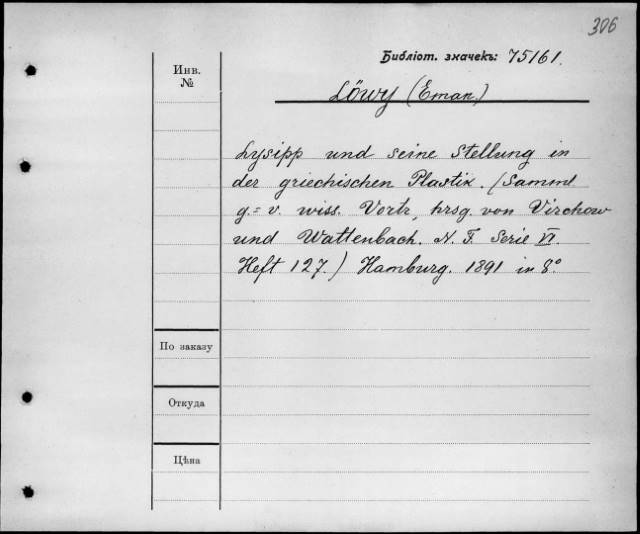 306
Библіот. значекъ: 75161.
Инв. №
Löwy (Eman.)
Lysipp und seine Stellung in
der griechischen Plastik. (Samml
g. = v. wiss. Vortr, hrsg. von Virchow
und Wattenbach. N. F. Serie VI.
Heft 127.) Hamburg. 1891 in 8°
По заказу
Откуда
Цѣна